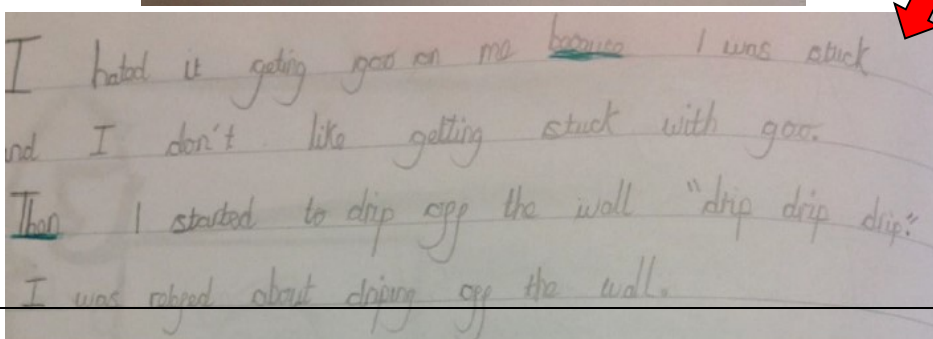 I hated it geting goo on me because I was stuck
and I don't like getting stuck with goo.
Then I started to drip off the wall "drip drip drip."
I was about driping off the wall.